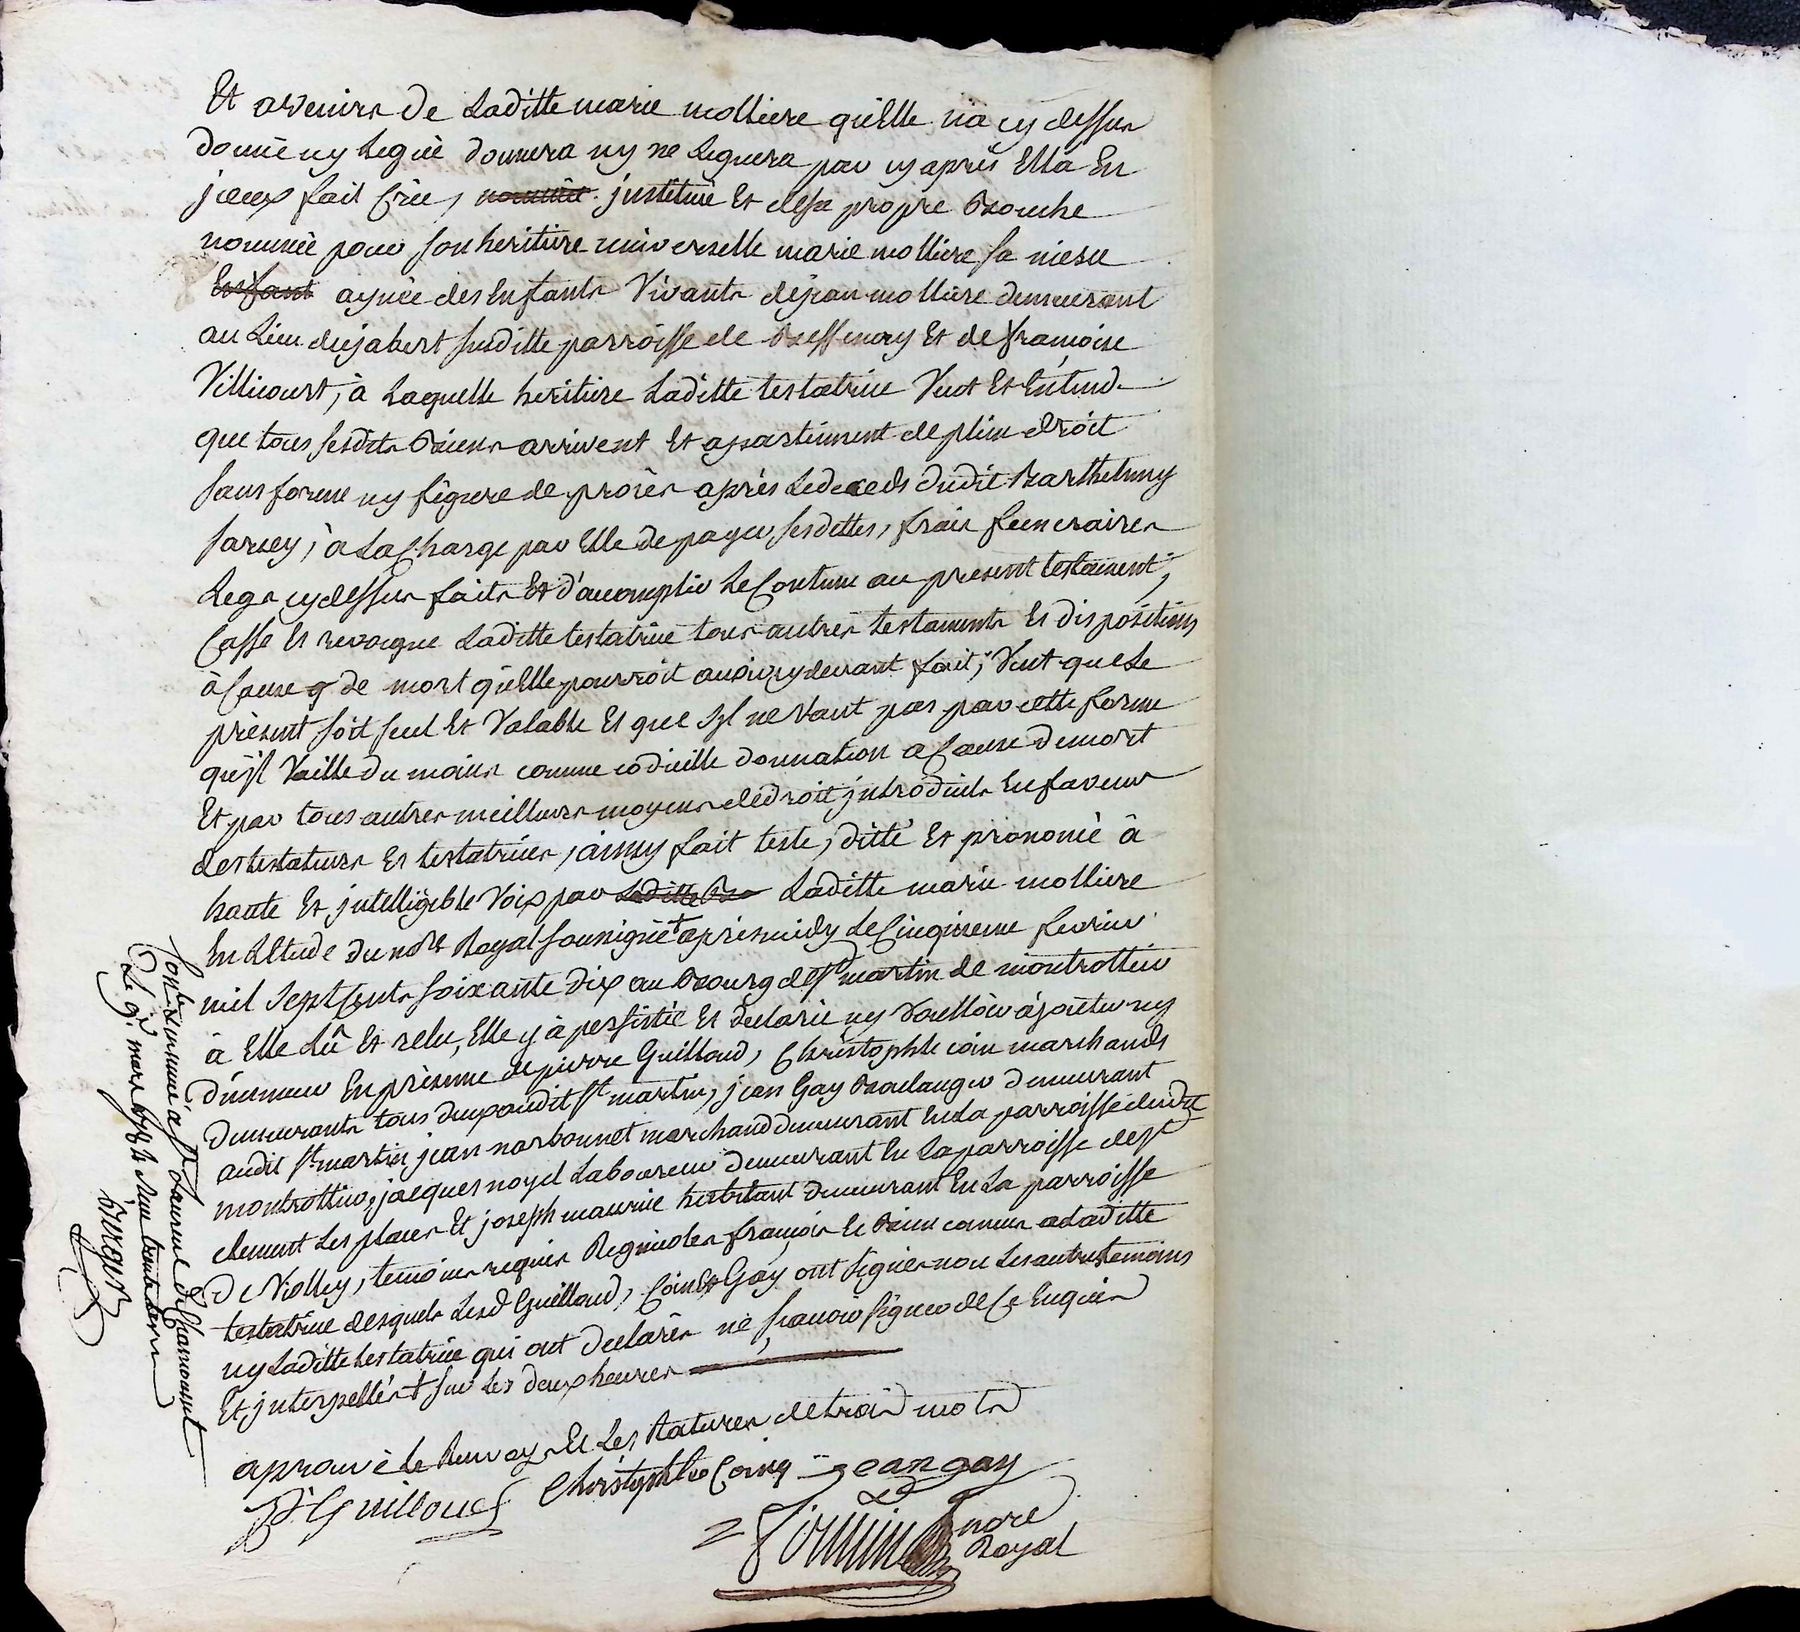 Et avenir de Laditte marie molliere qu'elle n'a cy dessus
donné ny legué donnera ny ne leguera par cy après Ella En
jceux fait Créé, nommée justitué Et desa propre Bouche
nommée pour son heritiere universelle marie molliere sa niesce
Enfant aynée des Enfants Vivants dejean molliere demeurant
au Lieu dejabert susditte parroisse de Bessenay Et de françoise
Villicourt, à Laquelle heritiere Laditte testatrice Veut Et Entend
que tous sesdits Biens arrivent Et appartiennent deplein droit
sans forme ny figure de procès après Ledeceds dudit Barthelemy
sarcey, à La Charge par Elle depayer ses dettes, frais funeraires
Legs cydessus faits Et d'accomplir Le Contenu au present testament,
Casse Et revoque Laditte testatrice tous autres testaments Et dispositions
à Cause de mort qu'Elle pourroit avoir cydevant fait, Veut que Le
présent soit seul Et Valable Et que s'jl ne Vaut pas par cette forme
qu'jl Vaille du moins comme codicille donnation a Cause demort
Et par tous autres meilleurs moyens dedroit jntroduits En faveur
des testateurs Et testatrices, ainsy fait testé, ditté Et prononcé à
haute Et jntelligible Voix par Laditte Laditte marie molliere
En L'Etude du nore Royal soussigné + après midy Le Cinquieme fevrier
mil Sept Cents soixante dix au Bourg de St martin de montrottier
à Elle Lû Et relu, Elle y à persisté Et declaré ny Voulloir ajouter ny
diminuer En présence de pierre Guilloud, Christophle coin marchands
demeurants tous deux audit St martin, jean Gay Boulanger demeurant
audit St martin jean narbonnet marchand demeurant En La parroisse dudit
montrottier, jacques noyel Laboureur demeurant En La parroisse de St
clement Les places Et joseph maurice habitant demeurant En La parroisse
De Violley, temoins requis Regnicoles françois Et Bien connus a Laditte
testatrice desquels Lesd Guilloud, Coin Et Gay ont signés non Les autres temoins
ny Laditte testatrice qui ont declarés ne sçavoir signer de Ce Enquis
Et jnterpellés + sur Les deux heures
aprouvé le Renvoy Et Les Ratures de trois mots
P Guilloud Christophle Coing jean gay
nore
Royal